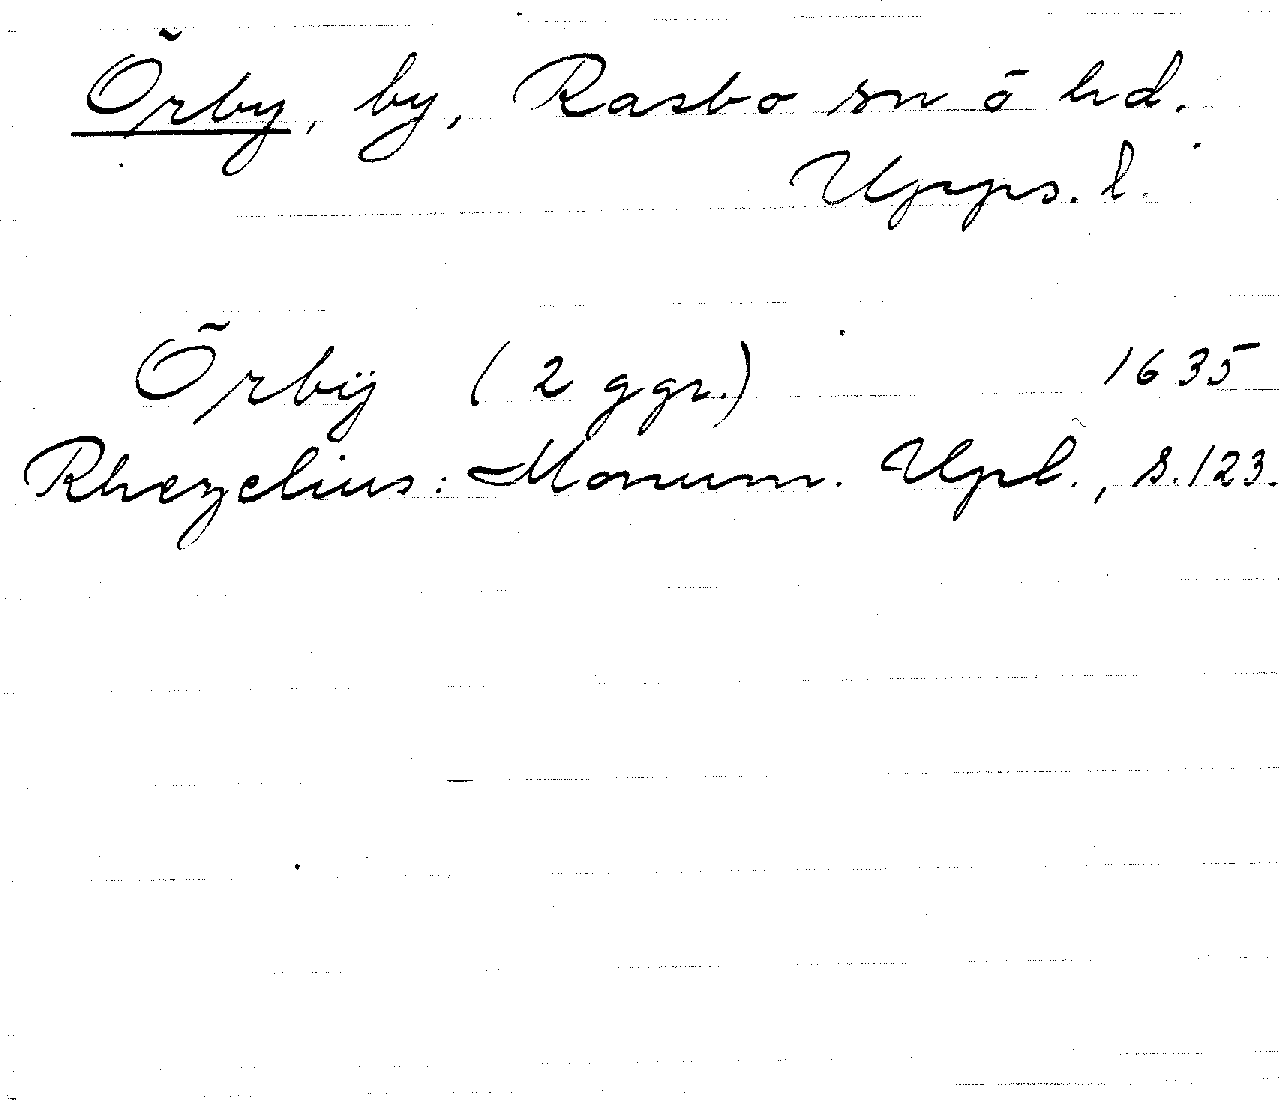 Örby, by, Rasbo sn o hd.
Upps. l.
Örbÿ (2 ggr.) 1635
Rhezelius: Monum. Upl., s. 123.